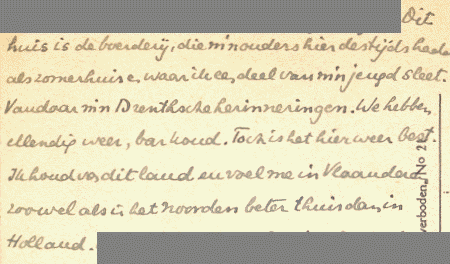 Dit
huis is de boerderij, die m'n ouders hier destijds hadd
als zomerhuis en, waar ik een deel van m'n jeugd sleet.
Vandaar m'n Drentsche herinneringen. We hebben
ellendig weer, bar koud. Toch is het hier weer best.
Ik houd van dit land en voel me in Vlaanderen
zoowel als in het Noorden beter thuis dan in
Holland.
verboden, No 2